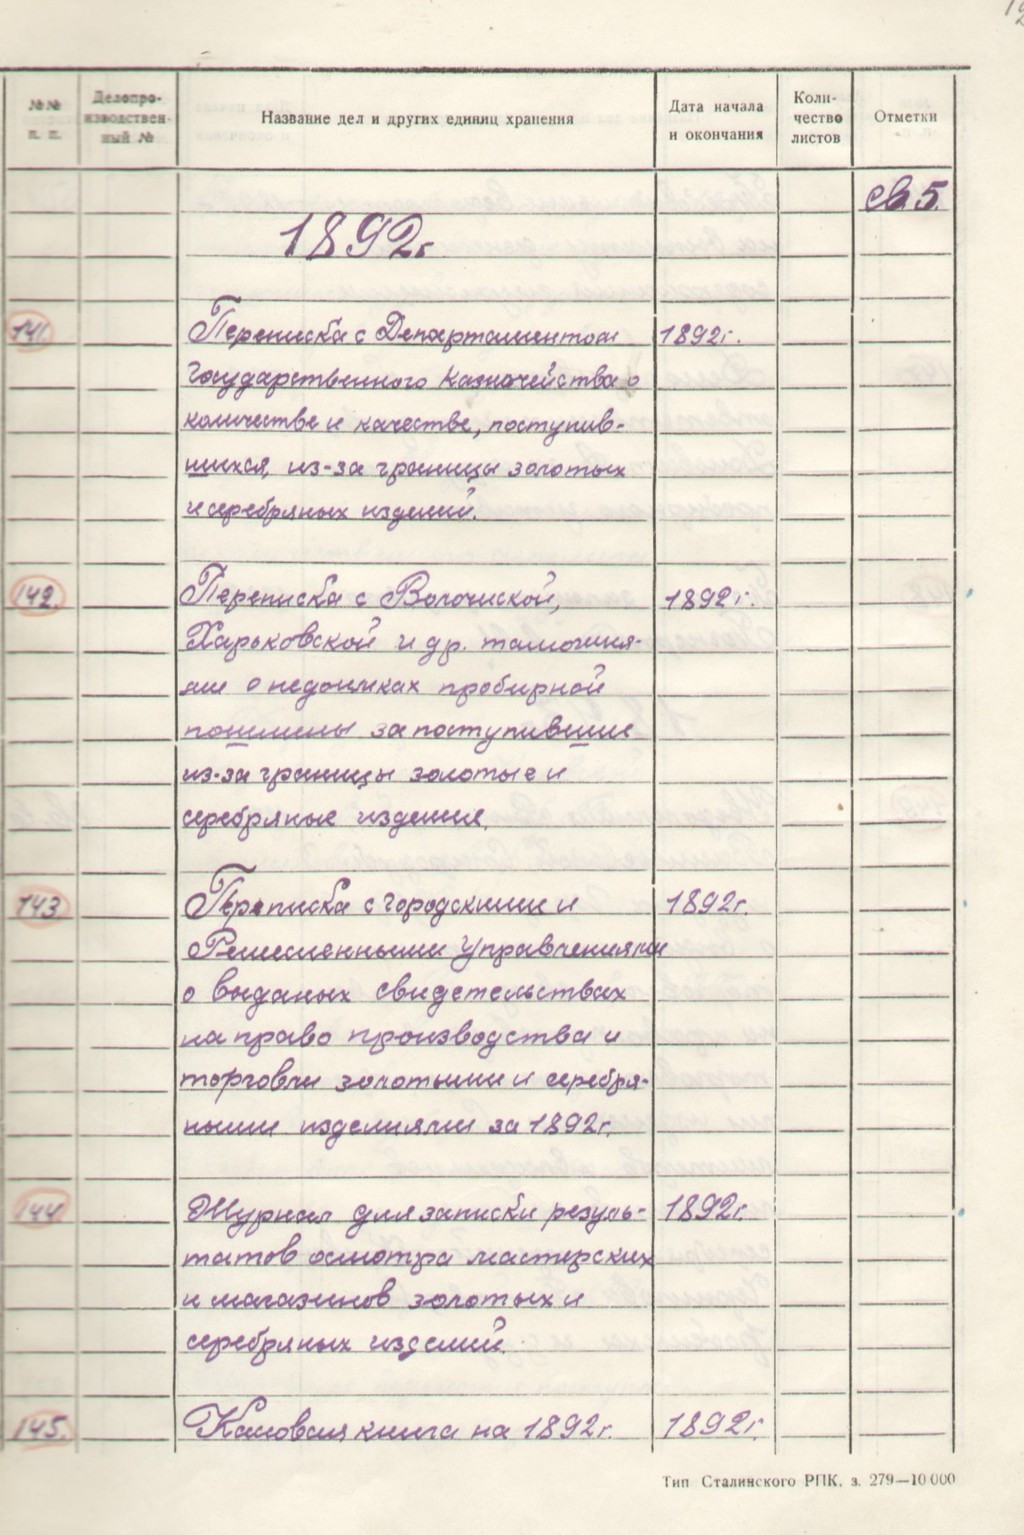 №№ п. п. Делопроизводственный № Название дел и других единиц хранения Дата начала и окончания Количество листов Отметки
св. 5.
1892г.
141. Переписка с Департаментом 1892г.
Государственного Казначейства о
количестве и качестве, поступив-
шихся, из-за границы золотых
и серебряных изделий.
142. Переписка с Волочиской, 1892г.
Харьковской и др. таможня-
ми о недоимках пробирной
пошлины за поступившие
из-за границы золотые и
серебряные изделия.
143. Переписка с Городскими и 1892г.
Ремесленными Управлениями
о выданых свидетельствах
на право производства и
торговли золотыми и серебря-
ными изделиями за 1892г.
144. Журнал для записки резуль- 1892г.
татов осмотра мастерских
и магазинов золотых и
серебряных изделий.
145. Кассовая книга на 1892г. 1892г.
Тип Сталинского РПК. з. 279—10 000